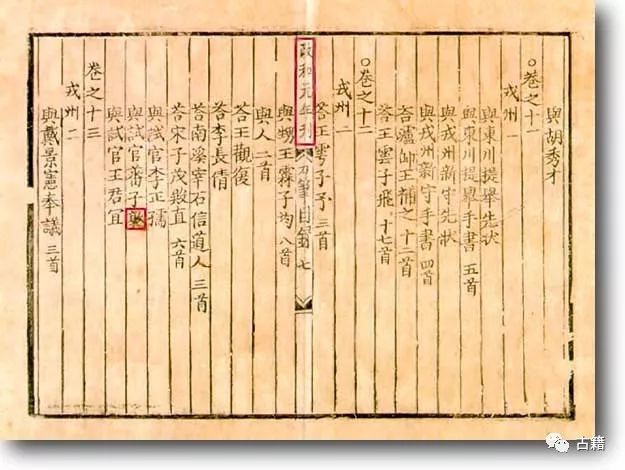 與胡秀才
○卷之十一
戎州一
與東川提舉先狀
與東川提舉手書 五首
與戎州新守先狀
與戎州新守手書 四首
荅瀘帥王補之十二首
荅王雲子飛 十七首
○卷之十二
戎州二
荅王雲子予 三首
與甥王霖子均 八首
政和元年刊
刀筆目錄 七
與人 二首
荅王觀復
荅李長倩
荅南溪宰石信道人 三首
荅宋子茂殿直 六首
與試官李正孺
與試官
與試官王君宜
卷之十三
戎州二
與戴景憲奉議 三首
古籍